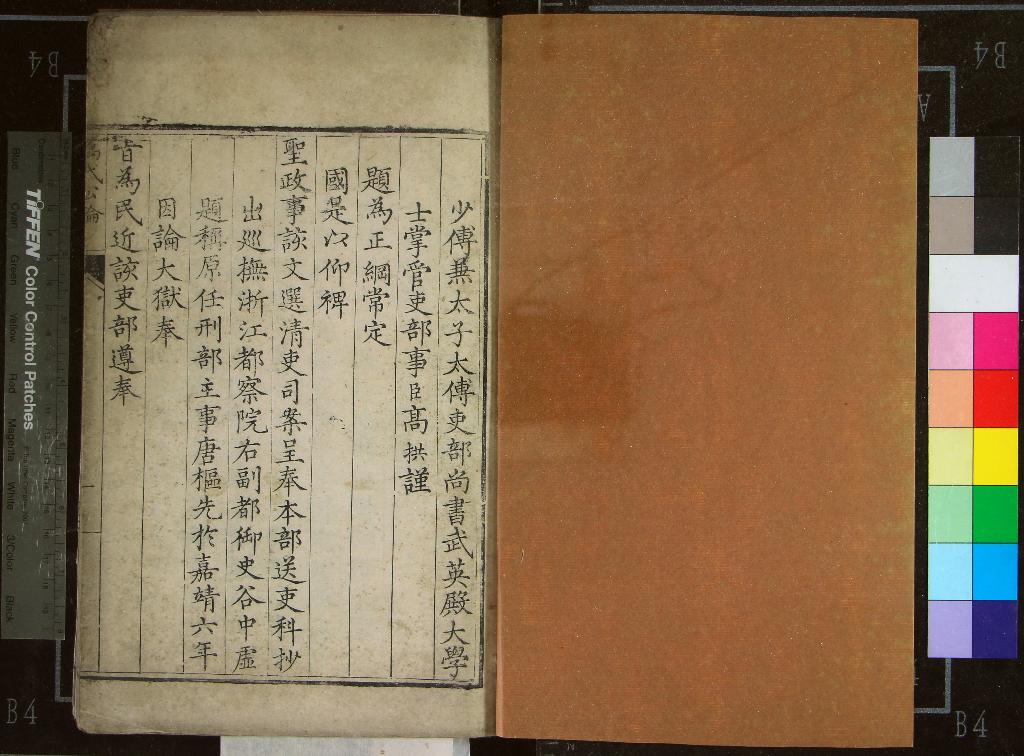 少傅兼太子太傅吏部尚書武英殿大學
士掌管吏部事臣高拱謹
題為正綱常定
國是以仰裨
聖政事該文選清吏司案呈奉本部送吏科抄
出巡撫浙江都察院右副都御史谷中虛
題稱原任刑部主事唐樞先於嘉靖六年
因論大獄奉
旨為民近該吏部遵奉
TIFFEN Color Control Patches
Blue
Cyan
Green
Yellow
Red
Magenta
White
3/Color
Black
B4
B4
B4
B4
A